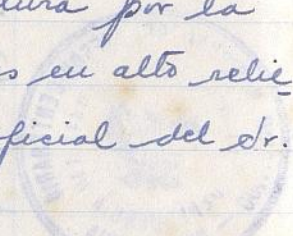 dura por la
s en alto relie
ficial del Sr.